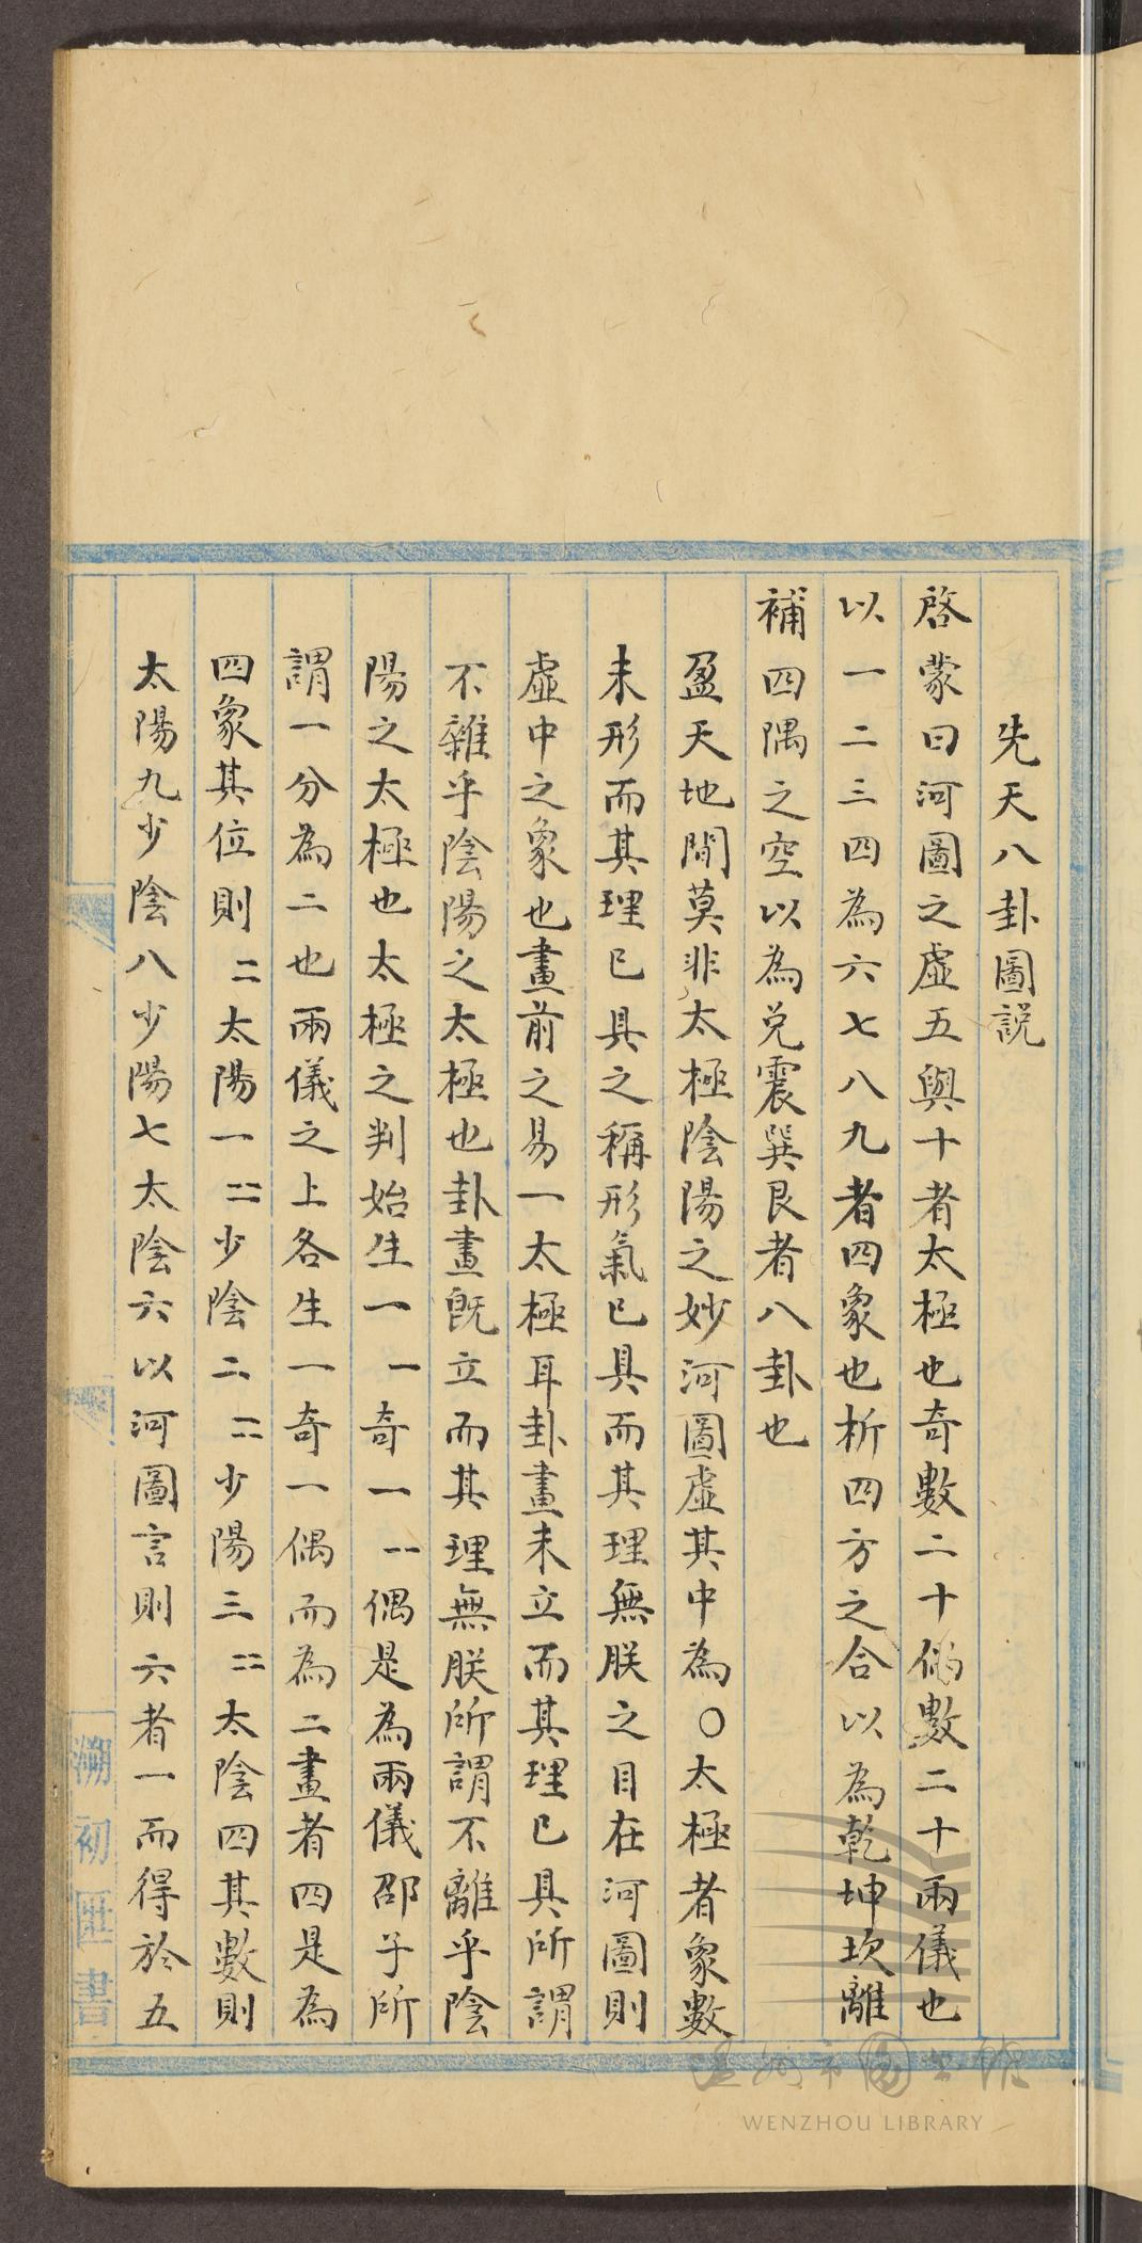 先天八卦圖説
啓蒙曰河圖之虛五與十者太極也奇數二十偶數二十兩儀也
以一二三四為六七八九者四象也析四方之合以為乾坤坎離
補四隅之空以為兌震巽艮者八卦也
盈天地間莫非太極陰陽之妙河圖虛其中為○太極者象數
未形而其理已具之稱形氣已具而其理無朕之目在河圖則
虛中之象也畫前之易一太極耳卦畫未立而其理已具所謂
不雜乎陰陽之太極也卦畫既立而其理無朕所謂不離乎陰
陽之太極也太極之判始生一⚊奇一⚋偶是為兩儀邵子所
謂一分為二也兩儀之上各生一奇一偶而為二畫者四是為
四象其位則⚌太陽一⚍少陰二⚎少陽三⚏太陰四其數則
太陽九少陰八少陽七太陰六以河圖言則六者一而得於五
溯初匭書
温州市圖書館
WENZHOU LIBRARY